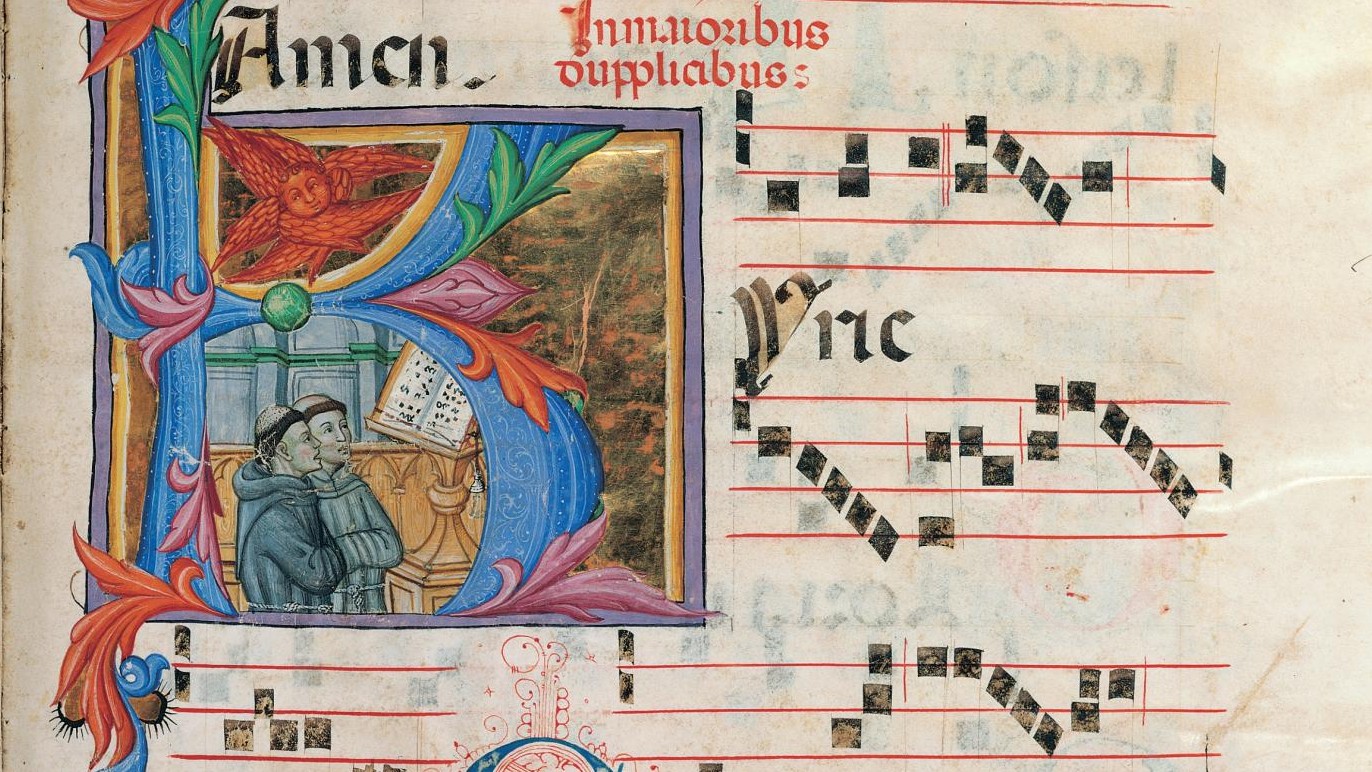 Amen.
Inmaioribus
dupplicibus:
KYrie